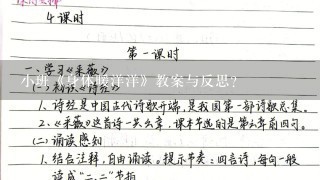 4课时
第一课时
一、学习《采薇》
(一)初识《诗经》
小班《身体暖洋洋》教案与反思?
1、诗经是中国古代诗歌开端,是我国第一部诗歌总集。
2、《采薇》这首诗一共六章,课本节选的是第六章前四句。
(二)诵读感知
1、结合注释,自由诵读。提示节奏:四言诗,每句一般
读成"二、二"节拍